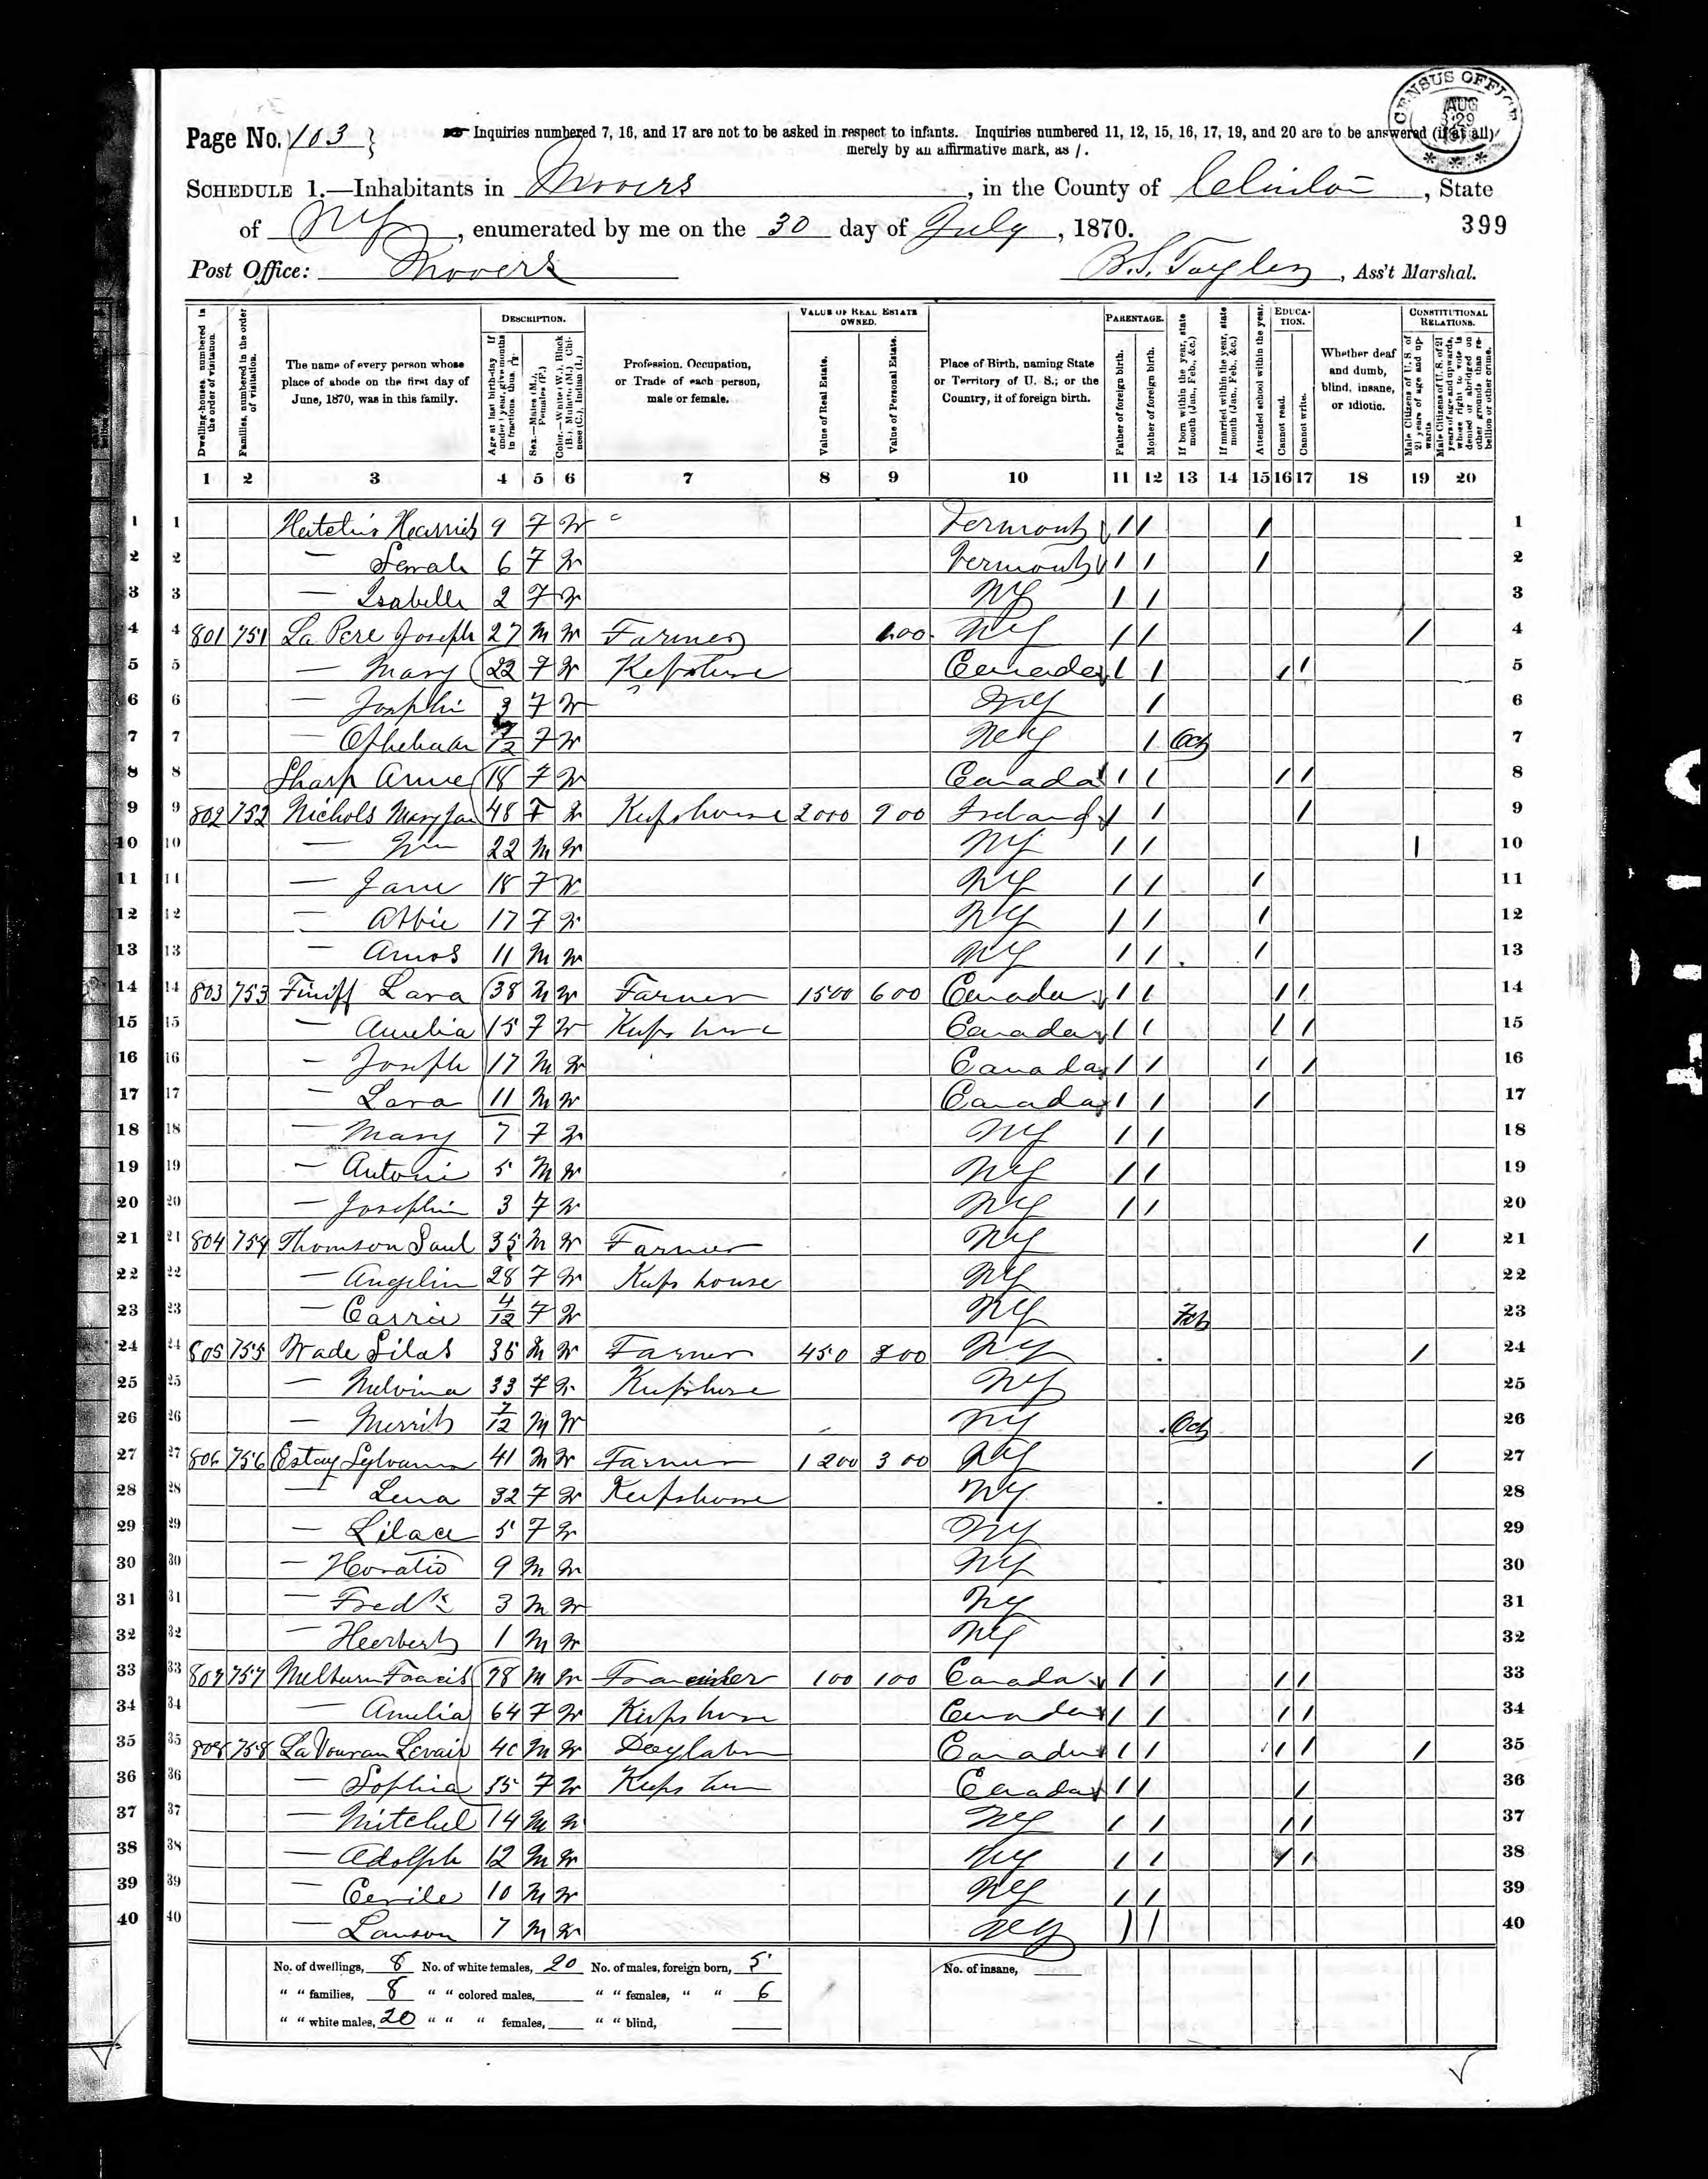 CENSUS OFFICE AUG 29
Page No. 103 } Inquiries numbered 7, 16, and 17 are not to be asked in respect to infants. Inquiries numbered 11, 12, 15, 16, 17, 19, and 20 are to be answered (if at all)
merely by an affirmative mark, as /.
SCHEDULE 1.—Inhabitants in Mooers, in the County of Clinton, State
of NY, enumerated by me on the 30 day of July, 1870. 399
Post Office: Mooers B.S. Taylor, Ass't Marshal.
Dwelling-houses, numbered in the order of visitation.
Families, numbered in the order of visitation.
The name of every person whose place of abode on the first day of June, 1870, was in this family.
DESCRIPTION.
Age at last birth-day. If under 1 year, give months in fractions, thus,
Sex.—Males (M.), Females (F.)
Color.—White (W.), Black (B.), Mulatto (M.), Chinese (C.), Indian (I.)
Profession, Occupation, or Trade of each person, male or female.
VALUE OF REAL ESTATE OWNED.
Value of Real Estate.
Value of Personal Estate.
Place of Birth, naming State or Territory of U. S.; or the Country, if of foreign birth.
PARENTAGE.
Father of foreign birth.
Mother of foreign birth.
If born within the year, state month (Jan., Feb., &c.)
If married within the year, state month (Jan., Feb., &c.)
Attended school within the year.
EDUCATION.
Cannot read.
Cannot write.
Whether deaf and dumb, blind, insane, or idiotic.
CONSTITUTIONAL RELATIONS.
Male Citizens of U. S. of 21 years of age and upwards
Male Citizens of U. S. of 21 years of age and upwards, whose right to vote is denied or abridged on other grounds than rebellion or other crime.
1 2 3 4 5 6 7 8 9 10 11 12 13 14 15 16 17 18 19 20
1 1 9 F W Vermont / / / 1
2 2 — Sarah 6 F W Vermont / / / 2
3 3 — Isabelle 2 F W NY / / 3
4 4 801 751 La Pere Joseph 27 M W Farmer NY / / / 4
5 5 — Mary 22 F W Canada / / / / 5
6 6 — 3 F W NY / 6
7 7 — F W NY / Oct 7
8 8 Sharp 18 F W Canada / / / / 8
9 9 802 752 Nichols Mary Jan 48 F W Keeps house 2000 900 Ireland / / / 9
10 10 — Wm 22 M W NY / / / 10
11 11 — Jane 18 F W NY / / / 11
12 12 — Abbie 17 F W NY / / / 12
13 13 — Amos 11 M W NY / / / 13
14 14 803 753 Finiff Lara 38 M W Farmer 1500 600 Canada / / / / 14
15 15 — Amelia 15 F W Keeps house Canada / / / / 15
16 16 — Joseph 17 M W Canada / / / / 16
17 17 — Lara 11 M W Canada / / / 17
18 18 — Mary 7 F W NY / / 18
19 19 — Antoni 5 M W NY / / 19
20 20 — Josephin 3 F W NY / / 20
21 21 804 754 Thomson Paul 35 M W Farmer NY / 21
22 22 — Angelin 28 F W Keeps house NY 22
23 23 — Carrie 4/12 F W NY Feb 23
24 24 805 755 Wade Silas 35 M W Farmer 450 300 NY / 24
25 25 — Melvina 33 F W Keeps house NY 25
26 26 — Merrit 7/12 M W NY Oct 26
27 27 806 756 Estay 41 M W Farmer 1200 300 NY / 27
28 28 — Lena 32 F W Keeps house NY 28
29 29 — 5 F W NY 29
30 30 — Horatio 9 M W NY 30
31 31 — Fredk 3 M W NY 31
32 32 — Heerbert 1 M W NY 32
33 33 807 757 Francis 78 M W 100 100 Canada / / / / 33
34 34 — Amelia 64 F W Keeps house Canada / / / / 34
35 35 808 758 40 M W Day labor Canada / / / / / 35
36 36 — Sophia 35 F W Keeps house Canada / / / 36
37 37 — Mitchel 14 M W NY / / / / 37
38 38 — Adolph 12 M W NY / / / / 38
39 39 — 10 M W NY / / 39
40 40 — Lawson 7 M W NY / / 40
No. of dwellings, 8 No. of white females, 20 No. of males, foreign born, 5 No. of insane,
" " families, 8 " " colored males, " " females, " " 6
" " white males, 20 " " " females, " " blind,